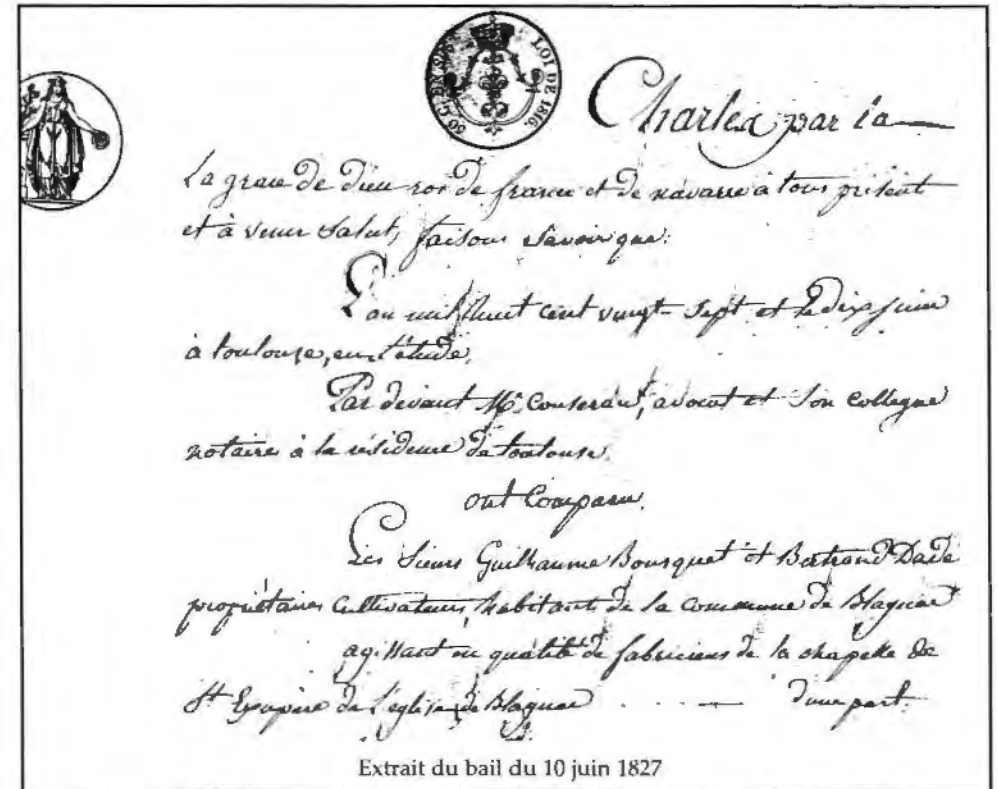 50 C. EN SUS
LOI DE 1816.
Charles par la
La grace de Dieu roi de france et de navarre à tous présent
et à venir Salut, faisons Savoir que:
L'an mil huit cent vingt-Sept et le dix juin
à toulouse, en l'étude,
Par devant Me. Couseran, avocat et Son Collegue
notaires à la résidence de toulouse.
ont Comparu.
Les Sieurs Guilhaume Bousquet et Bertrand Dade
propriétaires Cultivateurs, habitants de la Commune de Blagnac
agissant en qualité de fabriciens de la chapelle de
St Exupère de l'église de Blagnac . . . . — d'une part.
Extrait du bail du 10 juin 1827